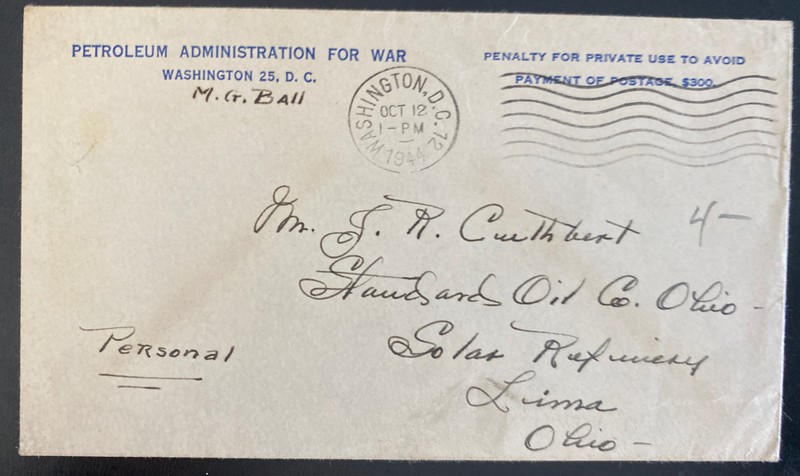 PETROLEUM ADMINISTRATION FOR WAR
WASHINGTON 25, D. C.
M. G. Ball
PENALTY FOR PRIVATE USE TO AVOID
PAYMENT OF POSTAGE, $300.
WASHINGTON, D.C. 12
OCT 12
1-PM
1944
4-
Mr. J. R. Cuthbert
Standard Oil Co. Ohio-
Solar Refinery
Lima
Ohio-
Personal